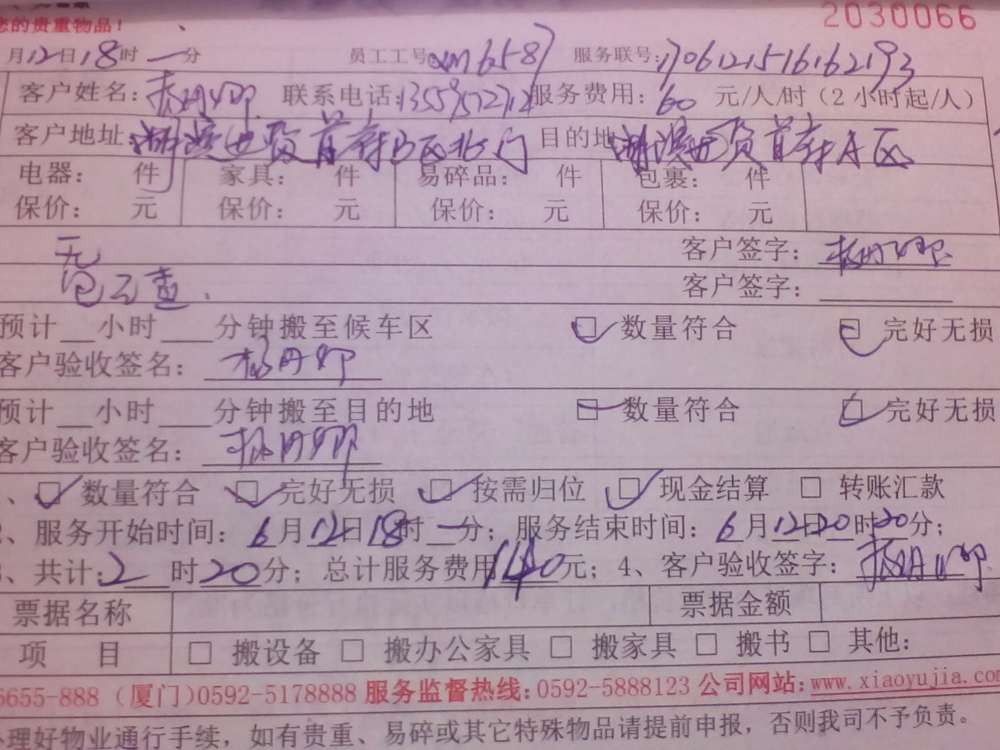 您的贵重物品！
2030066
月12日18时一分 员工工号:xm6587 服务联号:1706121516162193
客户姓名: 联系电话: 服务费用:60元/人/时（2小时起/人）
客户地址 湖滨一号首府B区北门 目的地 首府A区
电器： 件 家具： 件 易碎品： 件 包裹： 件
保价： 元 保价： 元 保价： 元 保价： 元
无 客户签字：
已元查. 客户签字：
预计__小时___分钟搬至候车区 数量符合 完好无损
客户验收签名：
预计__小时___分钟搬至目的地 数量符合 完好无损
客户验收签名：
、☑数量符合 ☑完好无损 ☑按需归位 ☑现金结算 □ 转账汇款
、服务开始时间：6月12日18时一分；服务结束时间：6月12日20时20分；
、共计：2时20分；总计服务费用140元；4、客户验收签字：
票据名称 票据金额
项 目 □ 搬设备 □ 搬办公家具 □ 搬家具 □ 搬书 □ 其他：
6655-888（厦门）0592-5178888 服务监督热线：0592-5888123 公司网站：www.xiaoyujia.com
办理好物业通行手续，如有贵重、易碎或其它特殊物品请提前申报，否则我司不予负责。